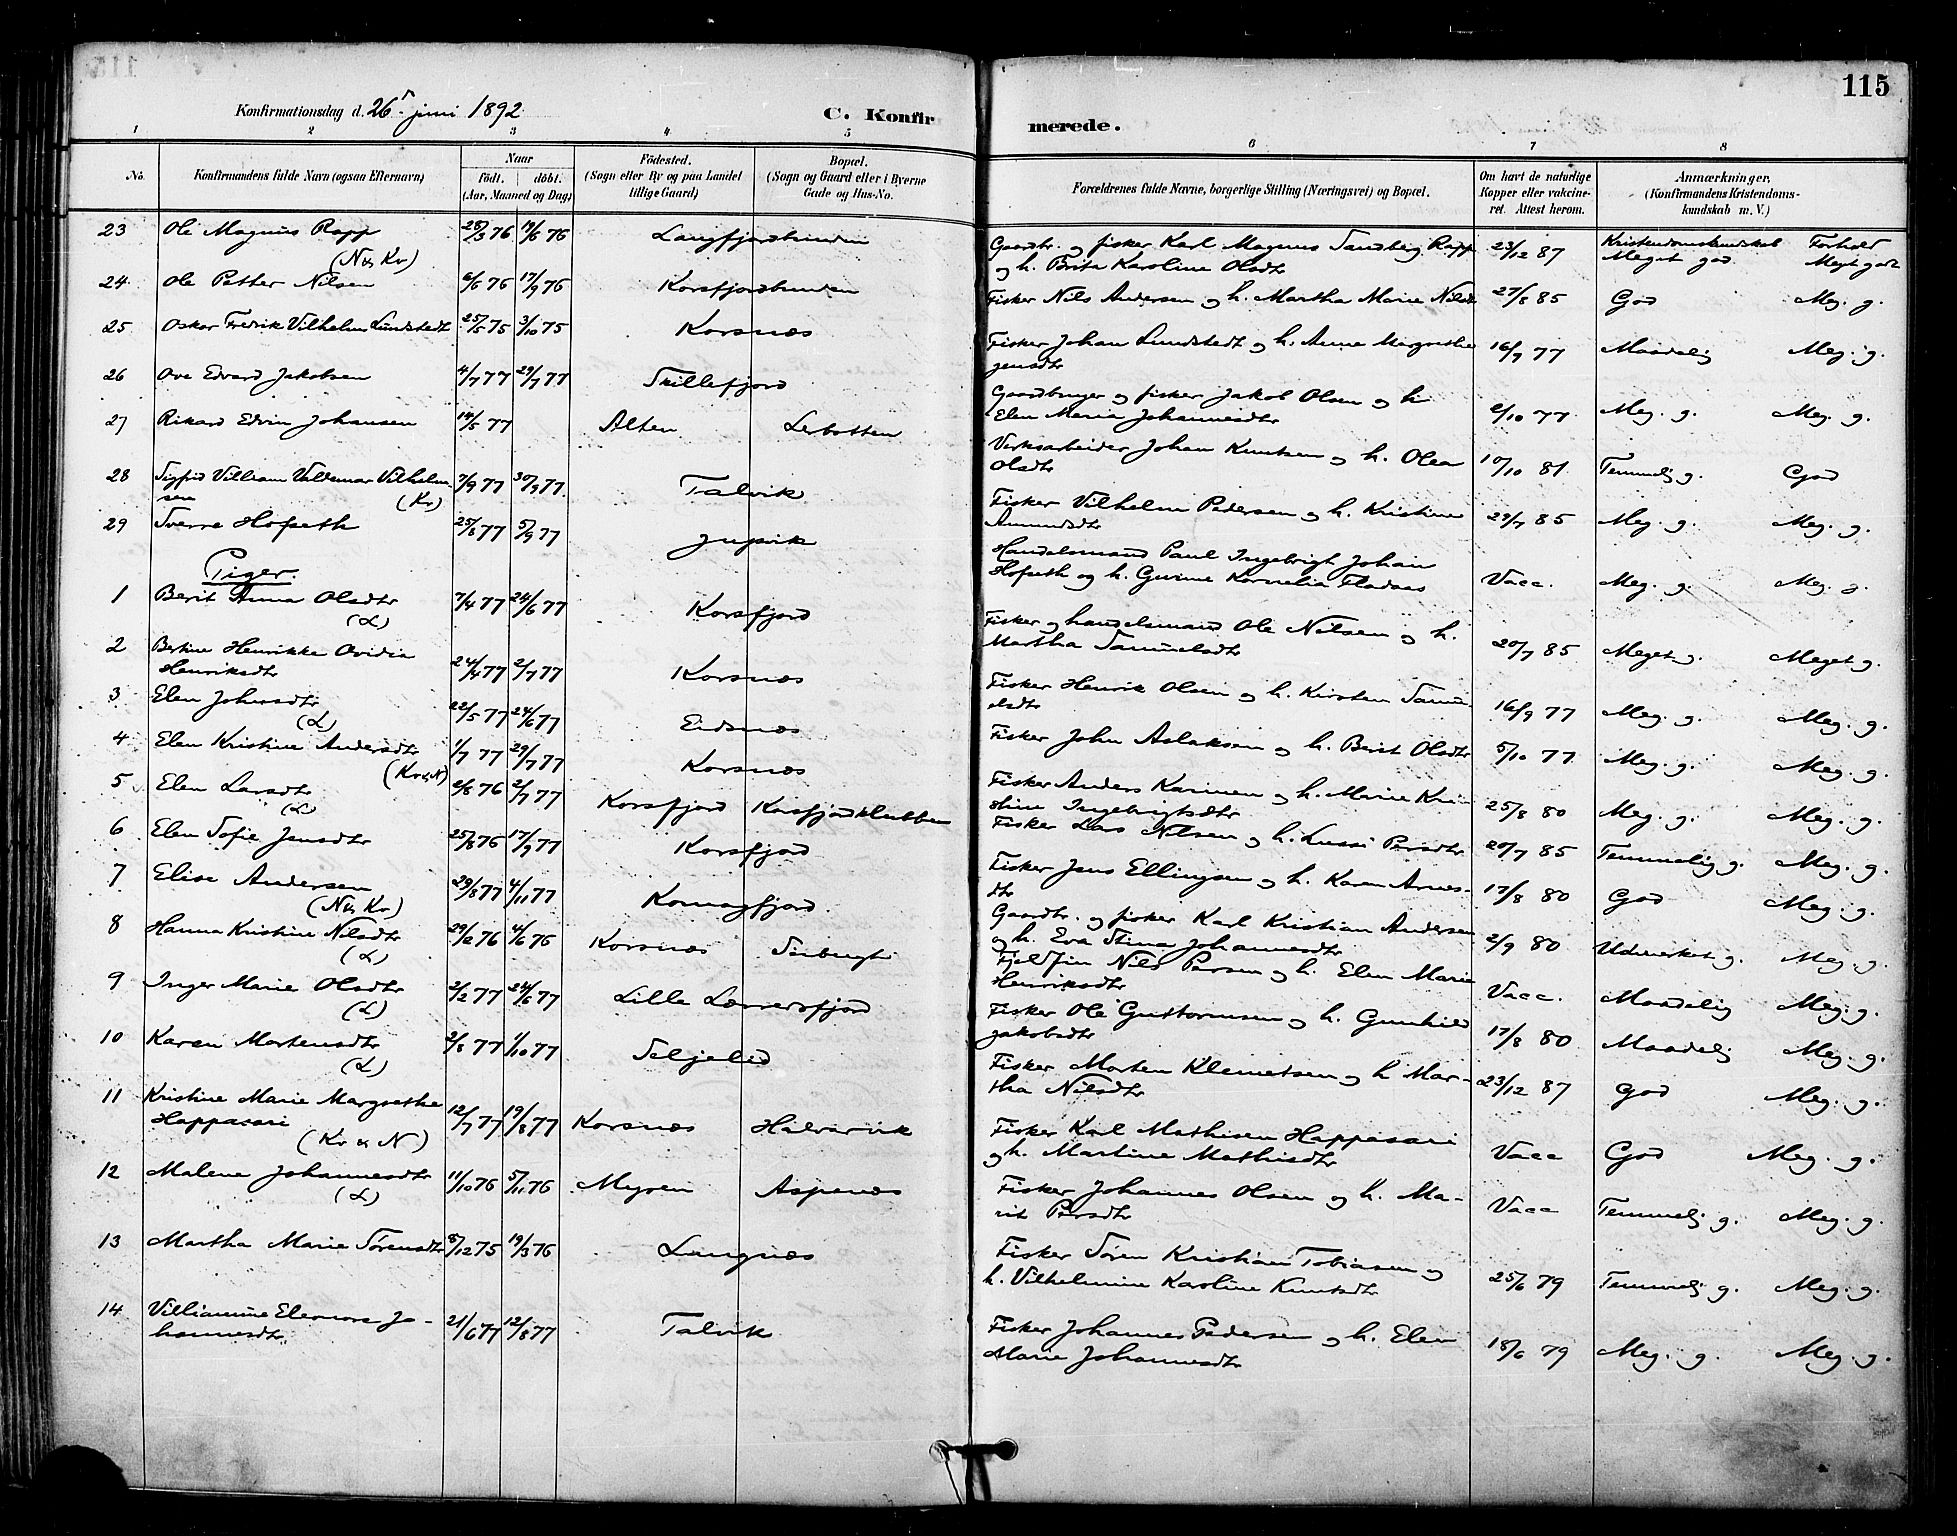 115
Konfirmationsdag d. 26 juni 1892
C. Konfirmerede.
1 2 3 4 5 6 7 8
No.
Konfirmandens fulde Navn (ogsaa Efternavn)
Naar
født. døbt.
(Aar, Maaned og Dag)
Fødested.
(Sogn eller By og paa Landet
tillige Gaard)
Bopæl.
(Sogn og Gaard eller i Byerne
Gade og Hus-No.
Forældrenes fulde Navne, borgerlige Stilling (Næringsvei) og Bopæl.
Om havt de naturlige
Kopper eller vakcine-
ret. Attest herom.
Anmærkninger,
(Konfirmandens Kristendoms-
kundskab m. V.)
Kristendomskundskab Forhold
23 Ole Magnus Rapp 28/3 76 19/6 76 Langfjordbunden Gaardbr. og fisker Karl Magnus Sandberg Rapp 23/12 87 Meget god Meget godt
(N & Kv) og h. Brita Karoline Olsdtr
24 Ole Petter Nilsen 6/6 76 17/9 76 Korsfjordbunden Fisker Nils Andersen og h. Martha Marie Nilsdtr 27/8 85 God Meg. g.
25 Oskar Fredrik Vilhelm Lundstedt 25/5 75 3/10 75 Korsnæs Fisker Johan Lundstedt og h. Anne Margrethe 16/9 77 Maadelig Meg. g.
Jensdtr
26 Ove Edvard Jakobsen 4/7 77 29/7 77 Skillefjord Gaardbruger og fisker Jakob Olsen og h. 2/10 77 Meg. g. Meg. g.
Elen Maria Johannesdtr
27 Rikard Edvin Johansen 14/5 77 Alten Lerbotten Verksarbeider Johan Knutsen og h. Olea 10/10 81 Temmelig g. God
Olsdtr
28 Sigfrid Villiam Valdemar Vilhelm- 7/9 77 30/9 77 Talvik Fisker Vilhelm Pedersen og h. Kristine 29/7 85 Meg. g. Meg. g.
sen (Kv) Amundsdtr
29 Sverre Hofseth 25/6 77 5/9 77 Jupvik Handelsmand Paul Ingebrigt Johan Vacc. Meg. g. Meg. g.
Hofseth og h. Gurine Kornelia Fladaas
Piger.
1 Berit Anna Olsdtr 7/4 77 24/6 77 Korsfjord Fisker og handelsmand Ole Nilsen og h. 20/7 85 Meget g. Meget g.
(L) Martha Samuelsdtr
2 Bertine Henrikke Ovidia 24/4 77 2/7 77 Korsnæs Fisker Henrik Olsen og h. Kirsten Samu- 16/9 77 Meg. g. Meg. g.
Henriksdtr elsdtr
3 Elen Johnsdtr 22/5 77 24/6 77 Eidsnæs Fisker John Aslaksen og h. Berit Olsdtr 5/10 77 Meg. g. Meg. g.
(L)
4 Elen Kristine Andersdtr 1/7 77 29/7 77 Korsnæs Fisker Anders Karinen og h. Marie Kri- 25/8 80 Meg. g. Meg. g.
(Kv & N) stine Ingebrigtsdtr
5 Elen Larsdtr 2/8 76 2/7 77 Korsfjord Korsfjordklubben Fisker Lars Nilsen og h. Lussi Persdtr 20/7 85 Temmelig g. Meg. g.
(L)
6 Elen Sofie Jensdtr 25/8 76 17/9 77 Korsfjord Fisker Jens Ellingsen og h. Karen Arnes- 17/8 80 God Meg. g.
dtr
7 Elise Andersen 29/8 77 4/11 77 Komagfjord Gaardbr. og fisker Karl Kristian Andersen 2/9 80 Udmerket g. Meg. g.
(N & Kv) og h. Eva Stina Johannesdtr
8 Hanna Kristine Nilsdtr 29/2 76 4/6 76 Korsnæs Fjeldfin Nils Persen og h. Elen Marie Vacc. Maadelig Meg. g.
(L) Henriksdtr
9 Inger Marie Olsdtr 2/2 77 24/6 77 Lille Lerresfjord Fisker Ole Guttormsen og h. Gunhild 17/8 80 Maadelig Meg. g.
(L) Jakobsdtr
10 Karen Mortensdtr 2/8 77 1/10 77 Seljelid Fisker Morten Klemetsen og h. Mar- 23/12 87 God Meg. g.
(L) tha Nilsdtr
11 Kristine Marie Margrethe 12/7 77 19/8 77 Korsnæs Halvarvik Fisker Karl Mathisen Happasari Vacc God Meg. g.
Happasari (Kv & N) og h. Martine Mathisdtr
12 Malene Johannesdtr 11/10 76 5/11 76 Myren Aspenæs Fisker Johannes Olsen og h. Ma- Vacc Temmelig g. Meg. g.
(L) rit Persdtr
13 Martha Marie Sørensdtr 8/12 75 19/3 76 Langnæs Fisker Søren Kristian Tobiasen og 25/6 79 Temmelig g. Meg. g.
h. Vilhelmine Karoline Knutsdtr
14 Villiamine Elenore Jo- 21/6 77 12/8 77 Talvik Fisker Johannes Pedersen og h. Elen 18/6 79 Meg. g. Meg. g.
hannesdtr. Marie Johannesdtr